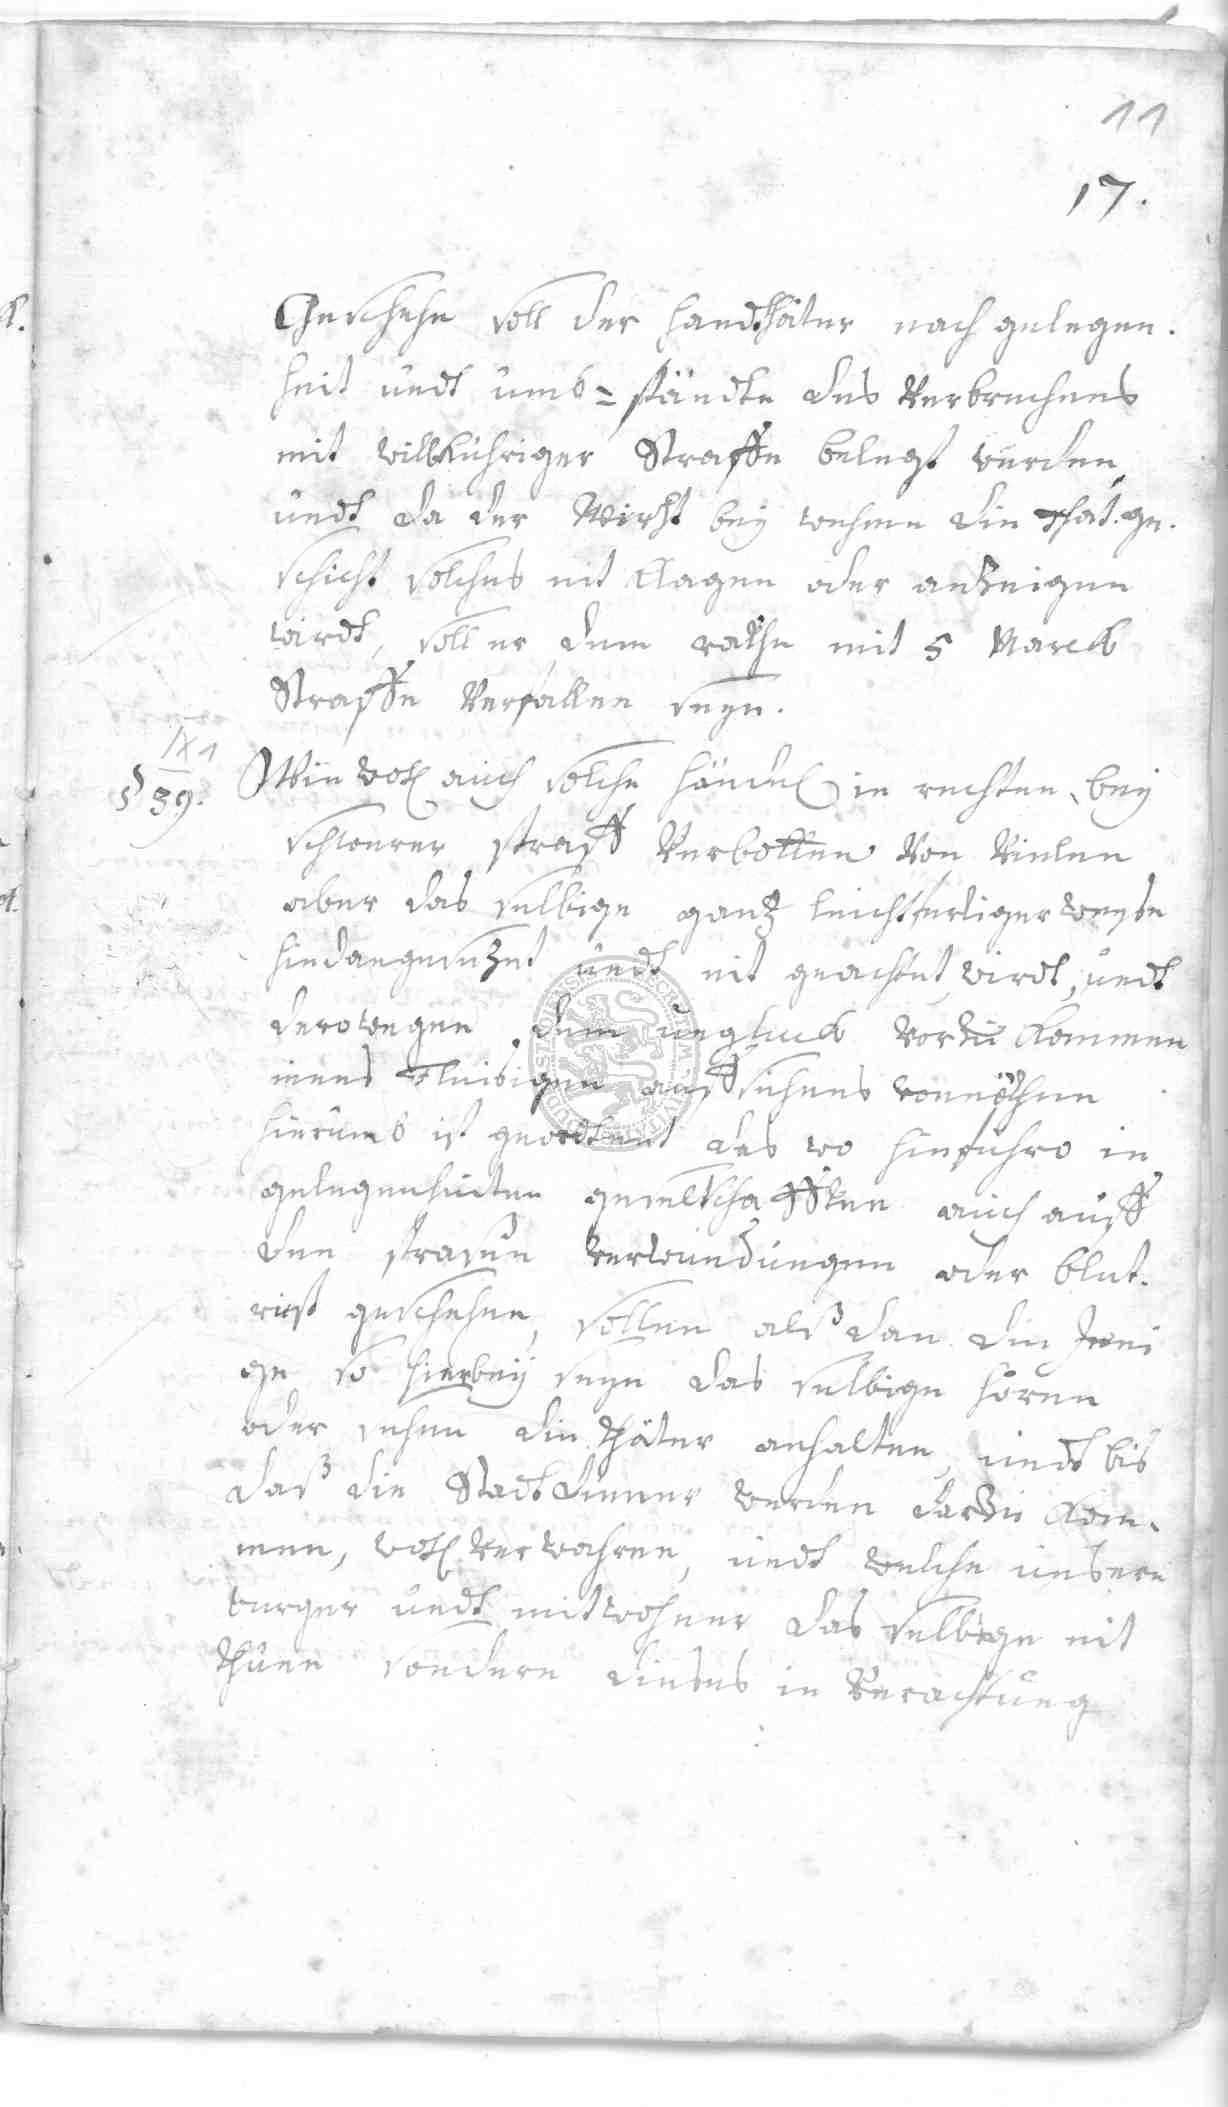 11
17.
Geschehe soll der handthäter nach gelegen.
heit undt umb=ständte des Verbrechens
mit willkühriger Straffe belegt werden,
undt da der Wirht bey wehme die That. ge.
schicht solches nit klagen oder anzeigen
wirdt, soll er dem rathe mit 5 Marck
Straffe Verfallen seyn.
IX 1
§ 39.
Wie woll auch solche händel in rechten, bey
schwerer straff Verbotten Von Vielen
aber das selbige gantz leichtfertiger weyse
hindangesezet undt nit geachtet wirdt, undt
derowegen dem ungluck Vorzu kommen
eines fleisigen auffsehens vonnöthen
hierumb ist geordtnet das wo hinfuhro in
gelegenheiten geselschafften auch auff
den strasen Verwundungen oder blut.
rist geschehen, sollen alß dan die Jeni
ge so hierbey seyn das selbige hören
oder sehen die thäter anhalten, undt bis
daß die Stadtdiener werden darzu kom.
men, woll Verwahren, undt welche unsere
burger undt mitwohner das selbige nit
thuen sondern dieses in Verachtung